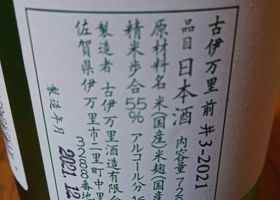 古伊万里 前 #3-2021
品目 日本酒 内容量72
原材料名 米(国産)米麹(国産
精米歩合55% アルコール分
製造者 古伊万里酒造有限会
佐賀県伊万里市二里町中里
3288番地
製造年月
2021.12